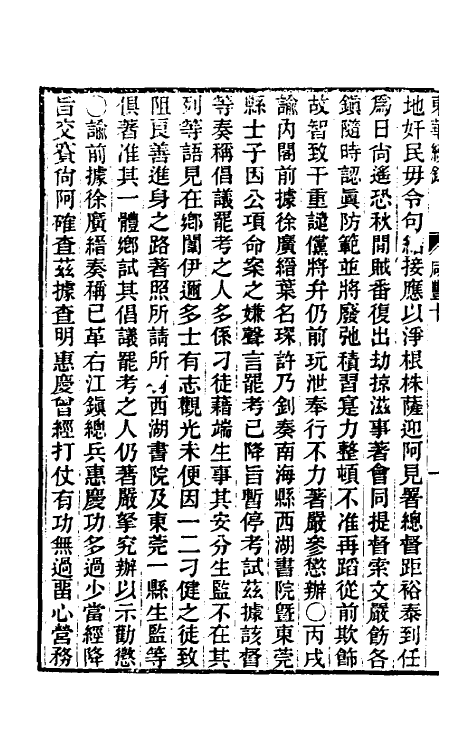 東華續錄　咸豐十　一
地奸民毋令句結接應以淨根株薩迎阿見署總督距裕泰到任
爲日尙遙恐秋閒賊番復出劫掠滋事著會同提督索文嚴飭各
鎭隨時認眞防範並將廢弛積習寔力整頓不准再蹈從前欺飾
故智致干重譴儻將弁仍前玩泄奉行不力著嚴參懲辦〇丙戌
諭內閣前據徐廣縉葉名琛許乃釗奏南海縣西湖書院曁東莞
縣士子因公項命案之嫌聲言罷考已降旨暫停考試茲據該督
等奏稱倡議罷考之人多係刁徒藉端生事其安分生監不在其
列等語見在鄕闈伊邇多士有志觀光未便因一二刁健之徒致
阻良善進身之路著照所請所有西湖書院及東莞一縣生監等
俱著准其一體鄕試其倡議罷考之人仍著嚴拏究辦以示勸懲
〇諭前據徐廣縉奏稱已革右江鎭總兵惠慶功多過少當經降
旨交賽尙阿確查茲據查明惠慶曾經打仗有功無過畱心營務